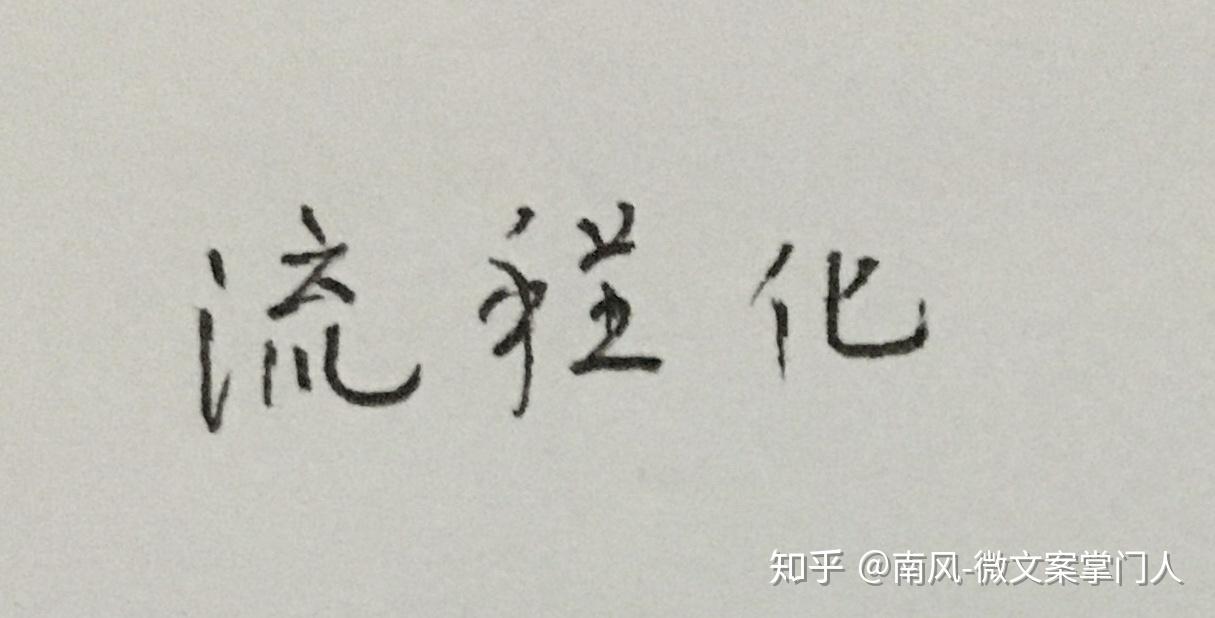 流程化
知乎 @南风-微文案掌门人